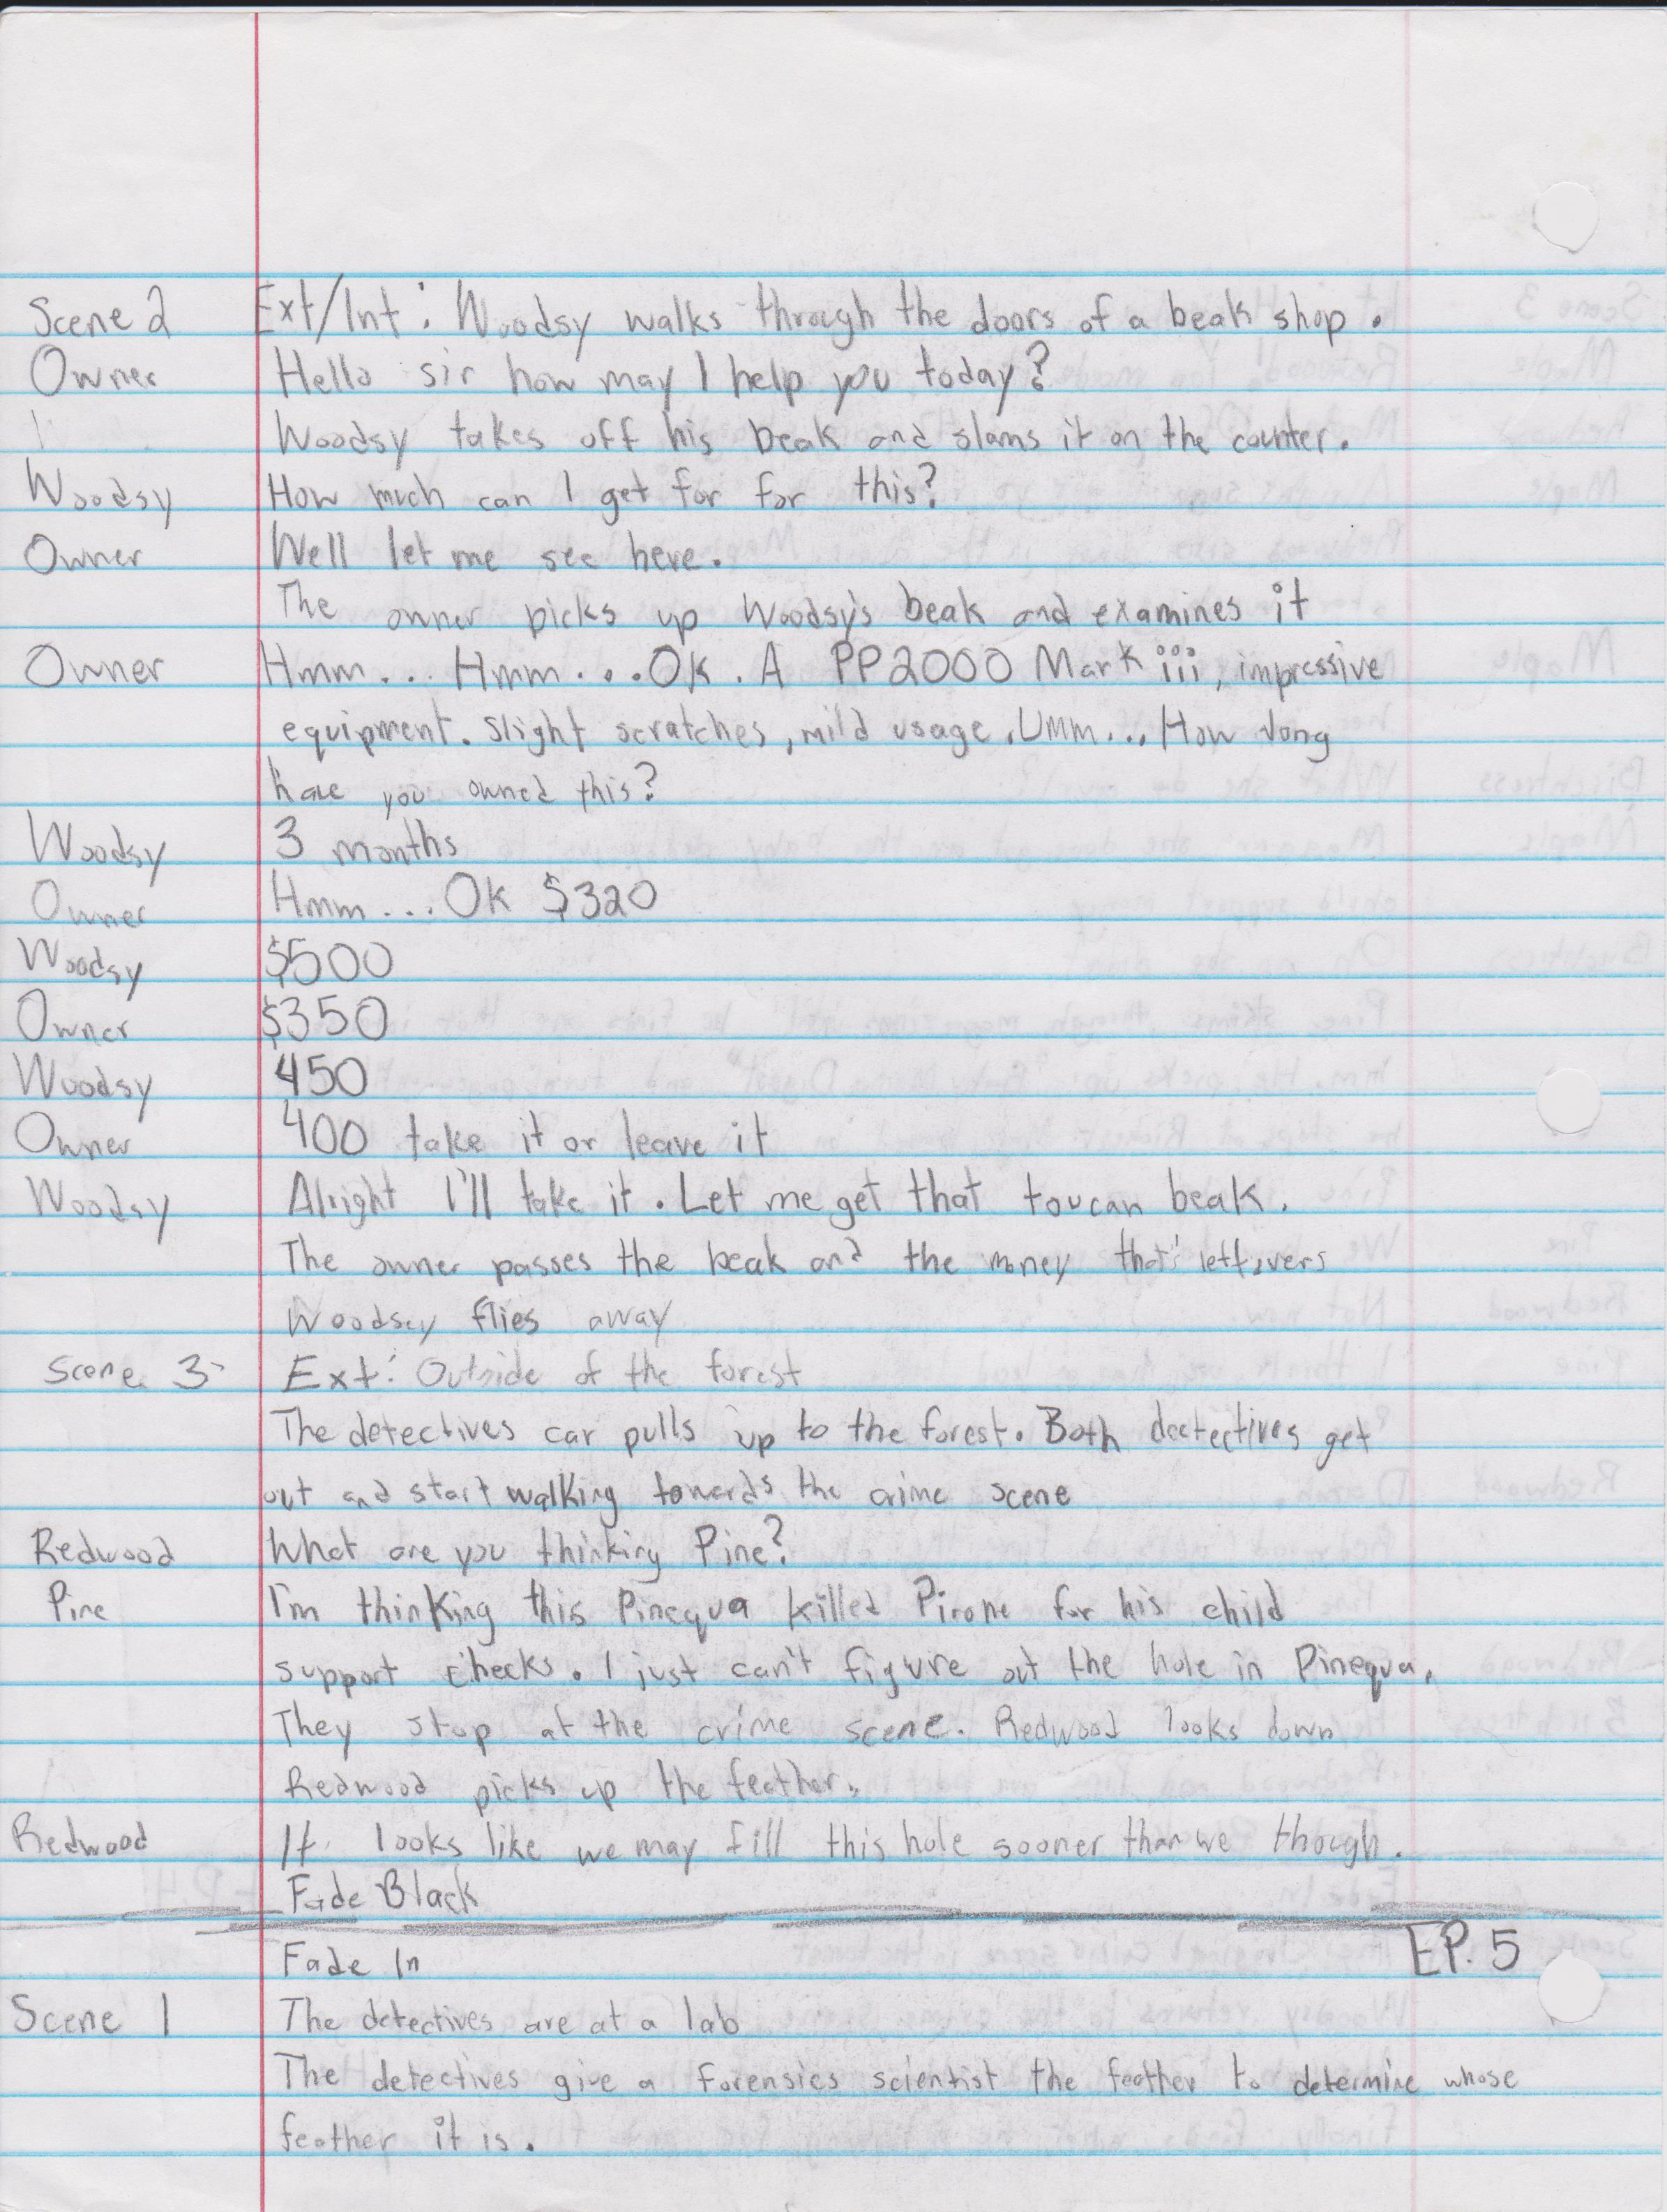 Scene 2 Ext/Int: Woodsy walks through the doors of a beak shop.
Owner Hello sir how may I help you today?
Woodsy takes off his beak and slams it on the counter.
Woodsy How much can I get for for this?
Owner Well let me see here.
The owner picks up Woodsy's beak and examines it
Owner Hmm... Hmm...Ok. A PP2000 Mark iii, impressive
equipment. slight scratches, mild usage. Umm... How long
have you owned this?
Woodsy 3 months
Owner Hmm... Ok $320
Woodsy $500
Owner $350
Woodsy 450
Owner 400 take it or leave it
Woodsy Alright I'll take it. Let me get that toucan beak.
The owner passes the beak and the money that's leftovers
Woodsey flies away
Scene 3 Ext: Outside of the forest
The detectives car pulls up to the forest. Both dectectives get
out and start walking towards the crime scene
Redwood What are you thinking Pine?
Pine I'm thinking this Pinequa killed Pirone for his child
support checks. I just can't figure out the hole in Pinequa.
They stop at the crime scene. Redwood looks down
Redwood picks up the feather.
Redwood It looks like we may fill this hole sooner than we though.
Fade Black
EP. 5
Fade In
Scene 1 The detectives are at a lab
The detectives give a forensics scientist the feather to determine whose
feather it is.